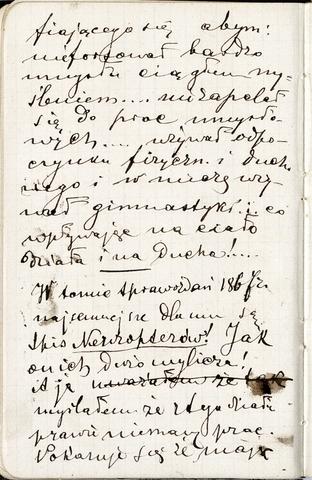 tiającego się abym:
nieforsował bardzo
umysłu ciągłem my-
śleniem.... nie zapalał
się do prac umysło-
wych.... używał odpo-
czynku fizyczn. i ducho
nego i w mierze uży-
wał gimnastyki i co
wpływając na ciało
działa i na Ducha!....
W tomie Sprawozdań 1867r.
najcenniejsze dla mnie są
spis Neuropterów! Jak
on ich dużo wylicza!
A ja uważałem że tak
myślałem że z tego działu
prawie niemamy prac.
Pokazuje się że mają